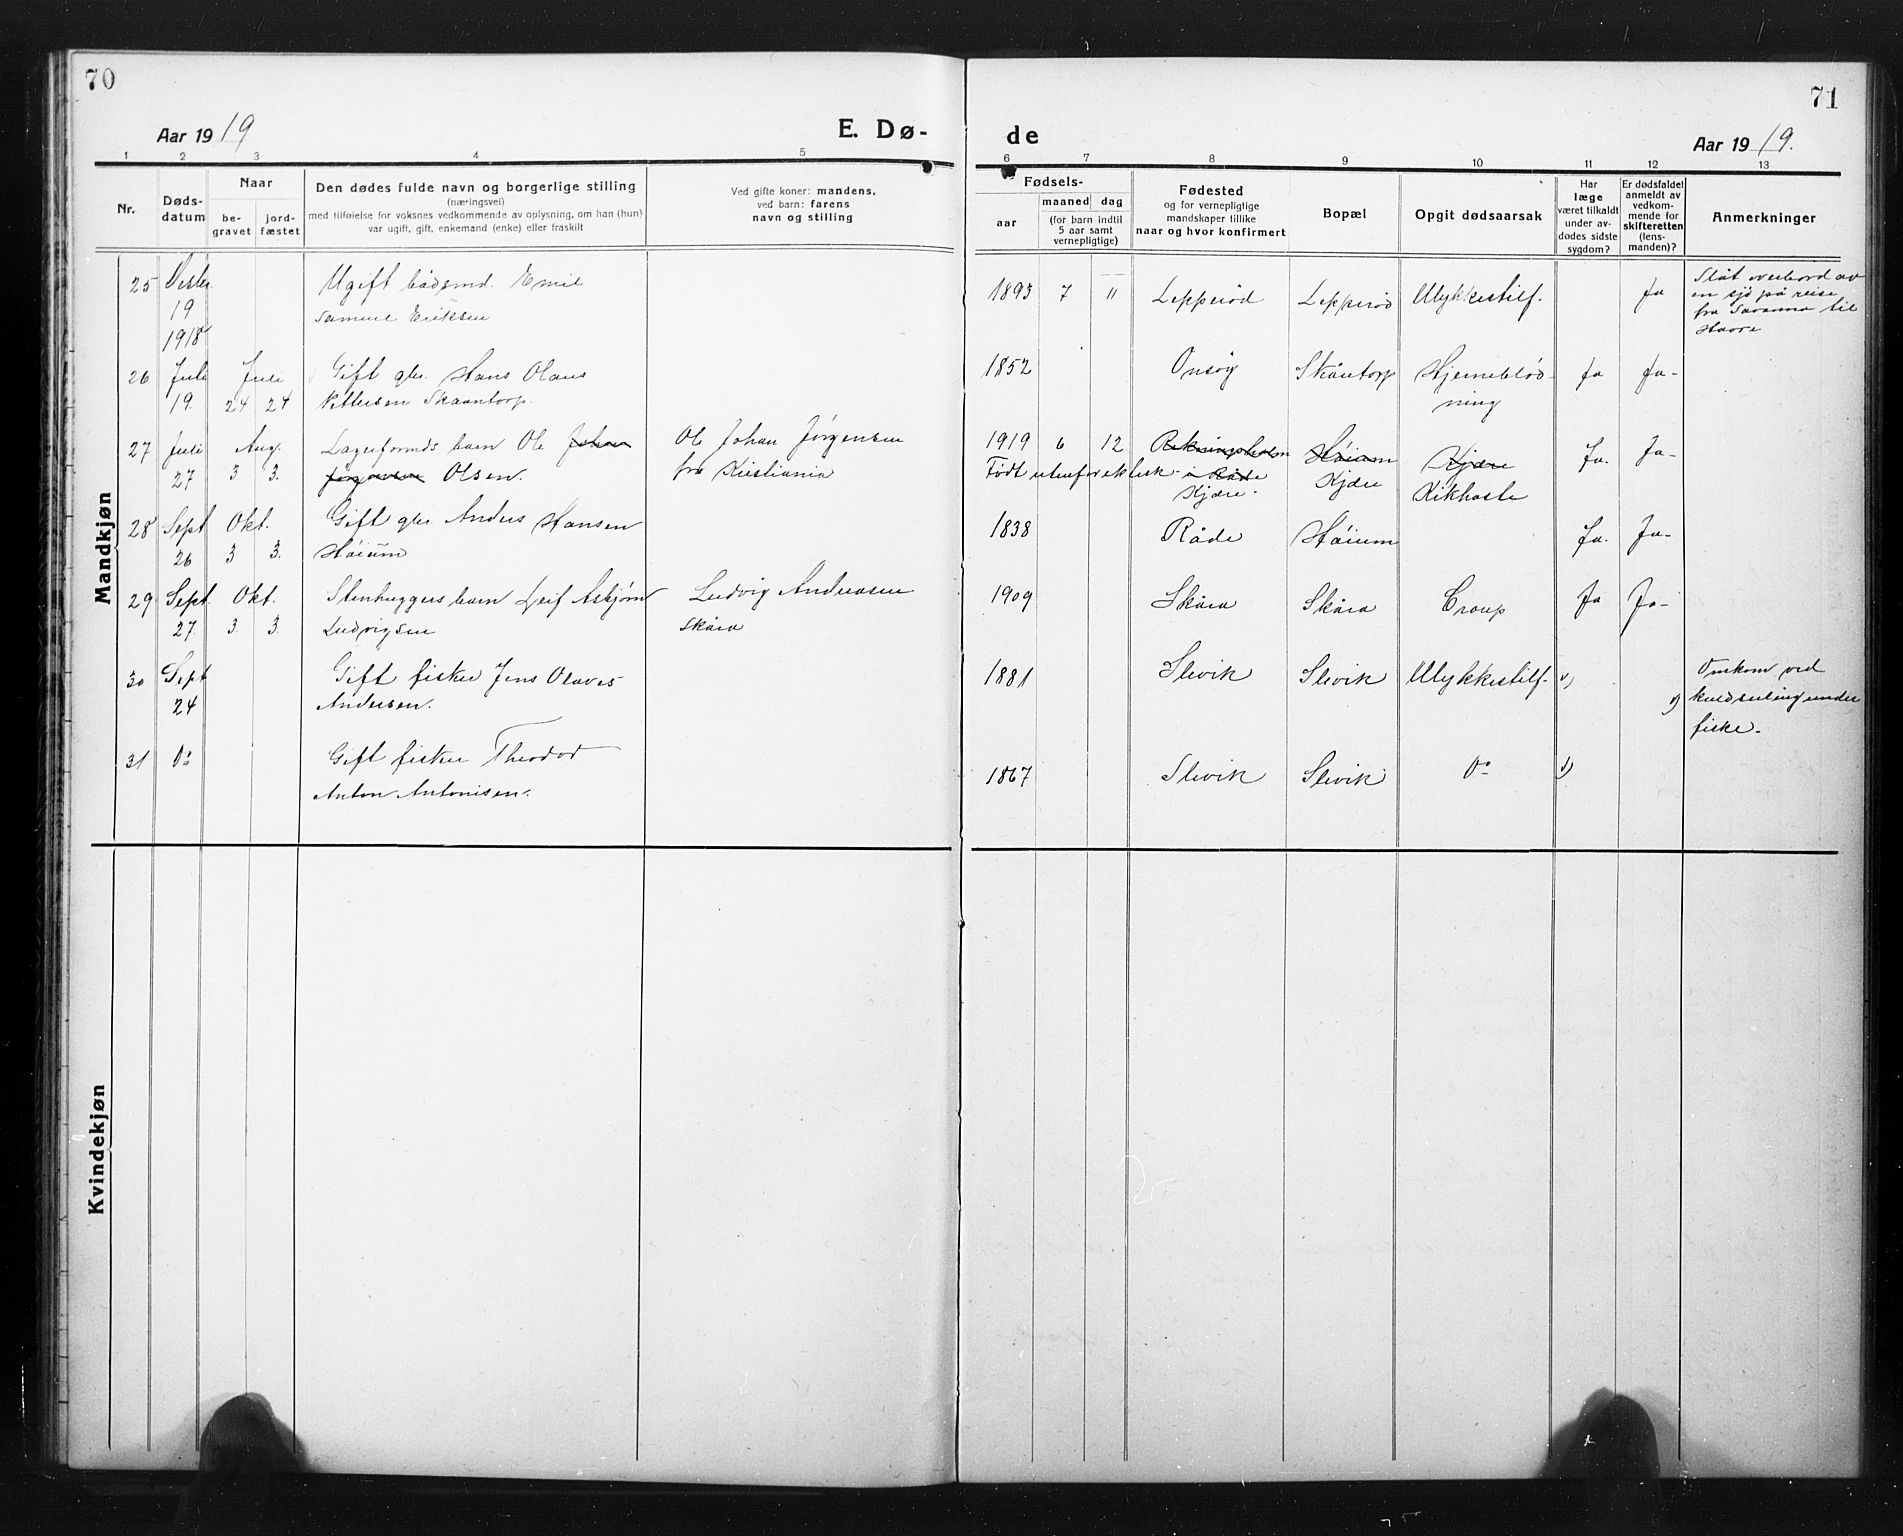 70
71
Aar 1919
E. Dø-
de
Aar 1919.
1 2 3 4 5 6 7 8 9 10 11 12 13
Nr.
Døds-
datum
Naar
be-
gravet
jord-
fæstet
Den dødes fulde navn og borgerlige stilling
(næringsvei)
med tilføielse for voksnes vedkommende av oplysning, om han (hun)
var ugift, gift, enkemand (enke) eller fraskilt
Ved gifte koner: mandens,
ved barn: farens
navn og stilling
Fødsels-
aar
maaned dag
(for barn indtil
5 aar samt
vernepligtige)
Fødested
og for vernepligtige
mandskaper tillike
naar og hvor konfirmert
Bopæl
Opgit dødsaarsak
Har
læge
været tilkaldt
under av-
dødes sidste
sygdom?
Er dødsfaldet
anmeldt av
vedkom-
mende for
skifteretten
(lens-
manden)?
Anmerkninger
Mandkjøn
25
19
1918
Ugift bådsmd. Emil
Samuel Eriksen
1893 7 "
Lepperød
Lepperød
Ulykkestilf.
Ja
Slåt overbord av
en sjø på reise
fra Savanna til
Havre
26
Juli
19.
Juli
24 24
Gift gbr. Hans Olaus
Pettersen Skaantorp.
1852
Onsøy
Skåntorp
Hjerneblød-
ning
Ja
Ja-
27
Juli
27
Aug.
3 3.
Lagerformds barn Ole Johan
Jørgensen Olsen.
Ole Johan Jørgensen
fra Kristiania
1919 6 12
Født utenfor ektesk. i Råde
Kjære.
Høium
Kjære
Kjære
Kikhoste
Ja.
Ja-
28
Sept
26
Okt.
3 3.
Gift gbr. Anders Hansen
Høium
1838
Råde
Høium
Ja.
Ja-
29
Sept.
27.
Okt.
3. 3.
Stenhuggers barn Leif Asbjørn
Ludvigsen
Ludvig Andreasen
Skåra
1909
Skåra
Skåra
Croup
Ja
Ja-
30
Sept
24
Gift fisker Jens Olaves
Andersen.
1881
Slevik
Slevik
Ulykkestilf.
Omkom ved
kuldseiling under
fiske.
31
Do
Gift fisker Theodor
Anton Antonisen.
1867
Slevik
Slevik
Do
Kvindekjøn